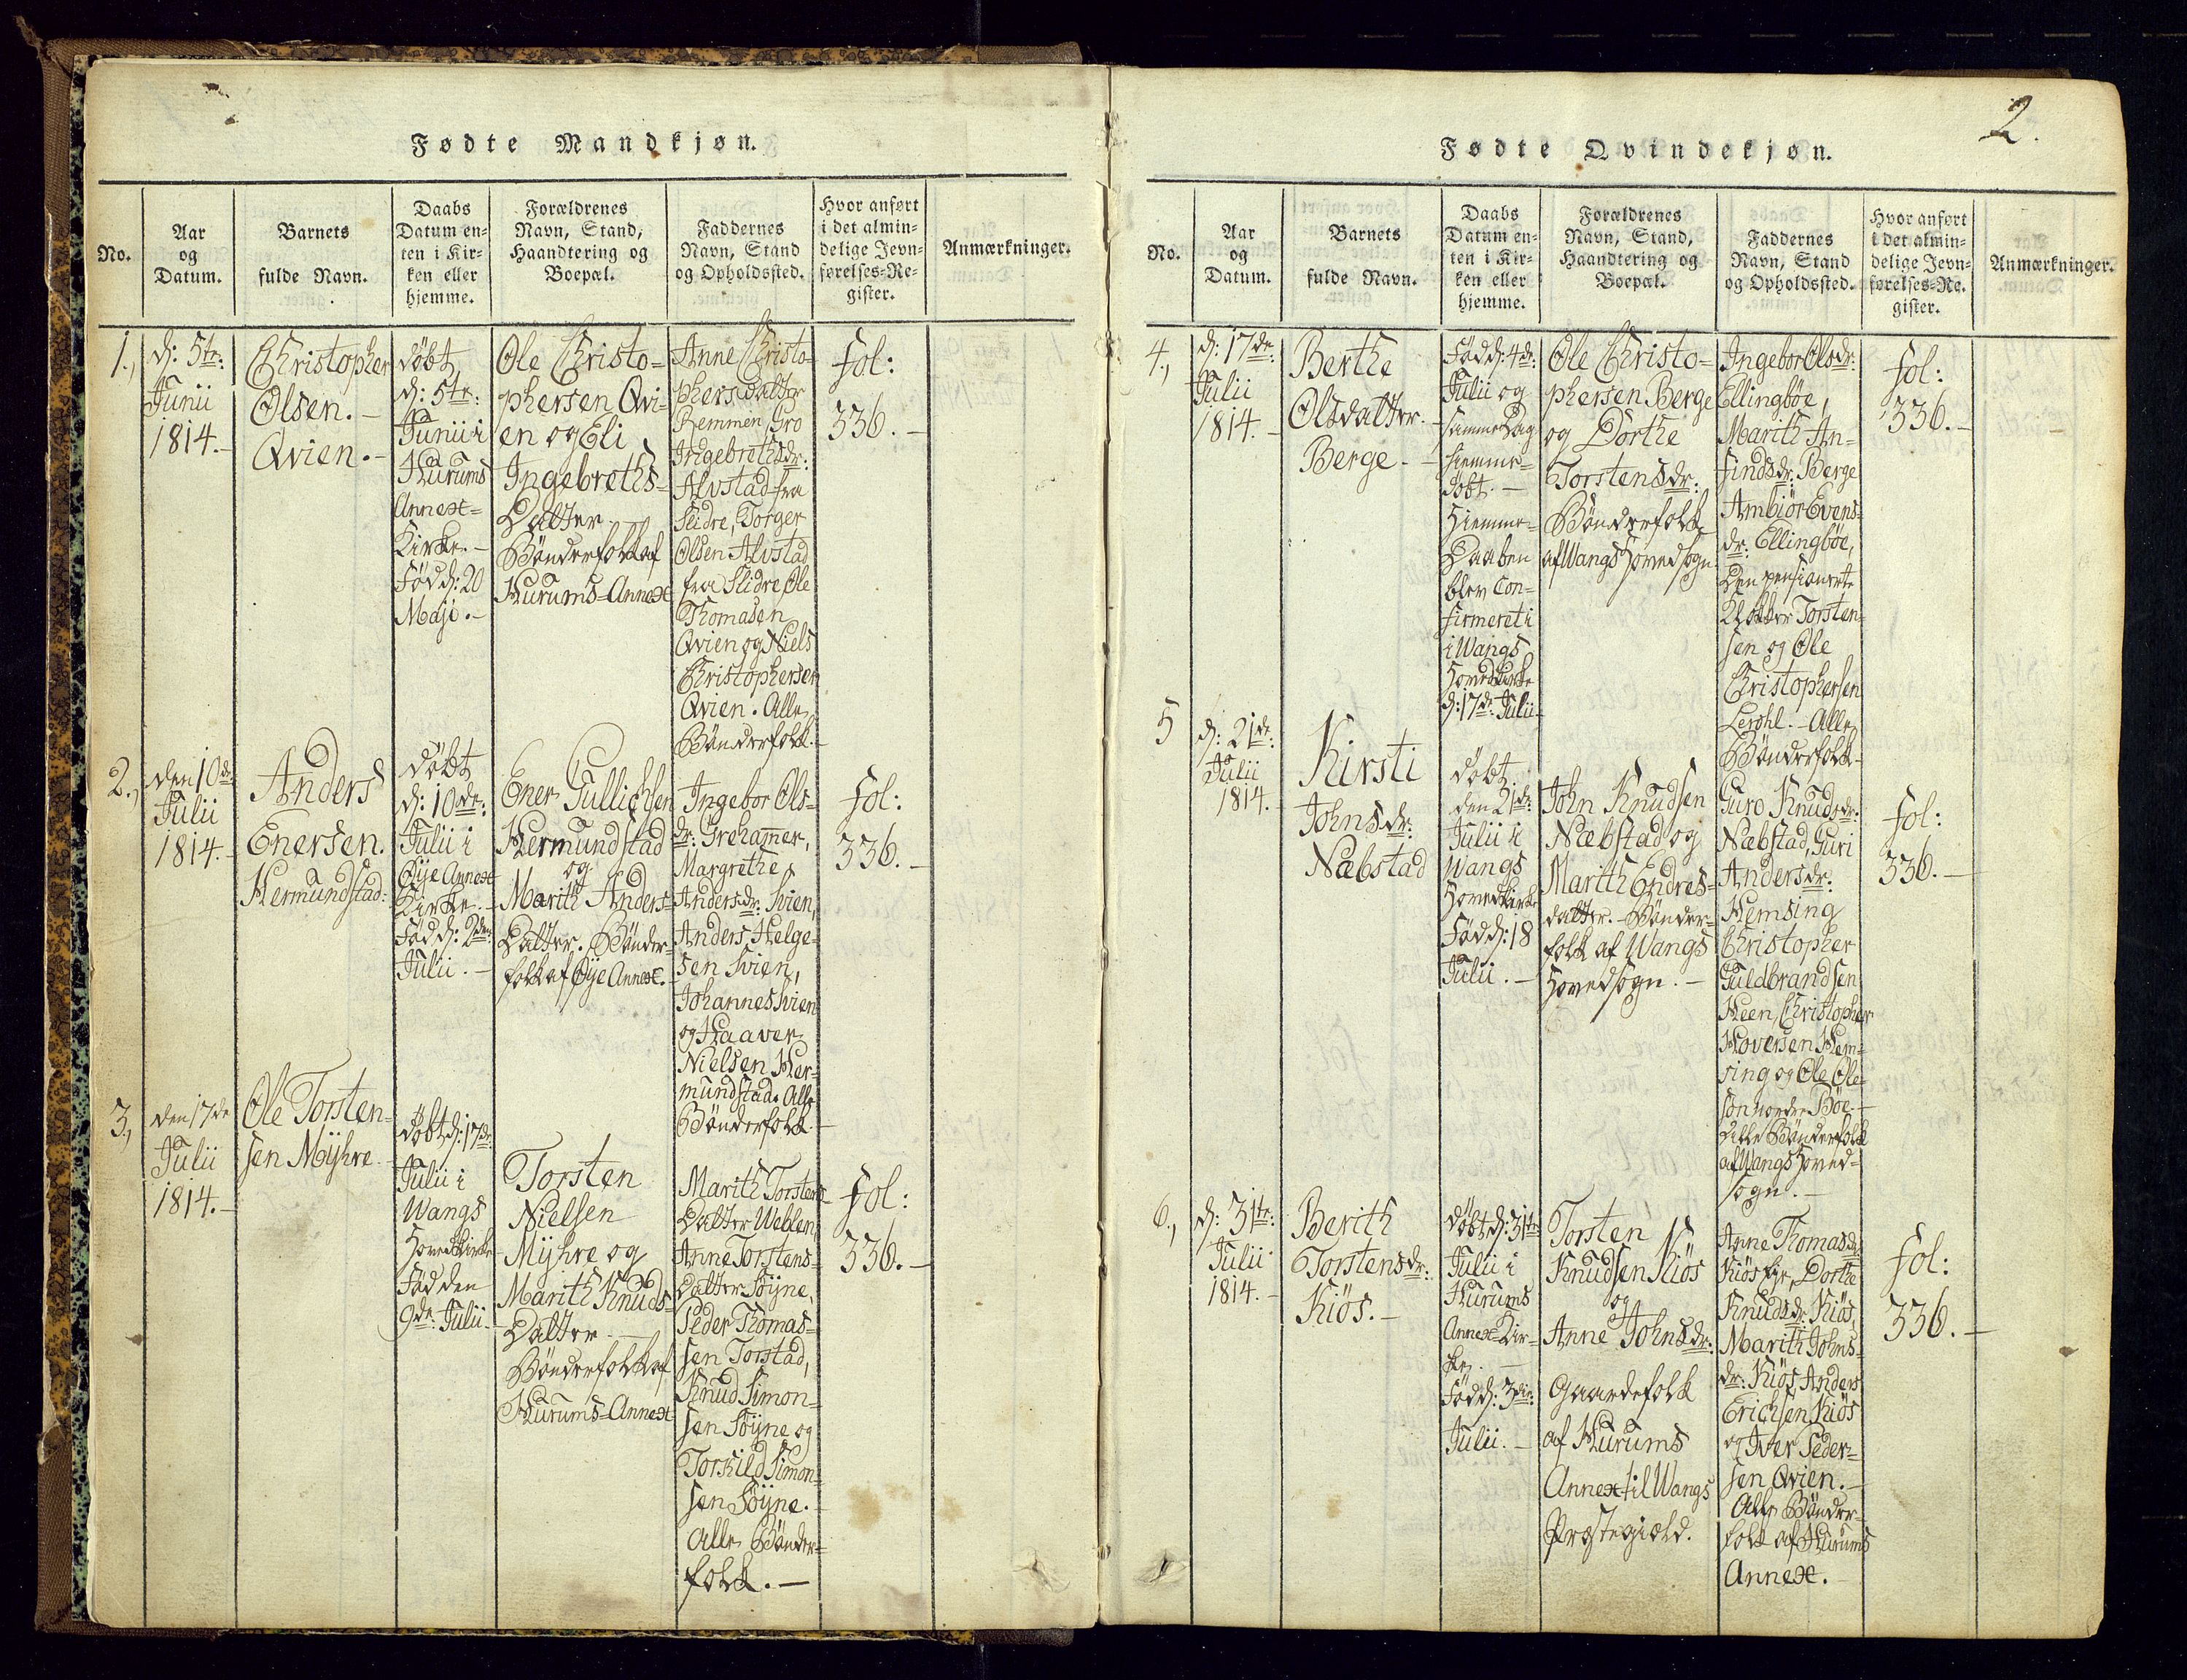 Fødte Mandkjøn.
No.
Aar
og
Datum.
Barnets
fulde Navn.
Daabs
Datum en-
ten i Kir-
ken eller
hjemme.
Forældrenes
Navn, Stand,
Haandtering og
Boepæl.
Faddernes
Navn, Stand
og Opholdssted.
Hvor anført
i det almin-
delige Jevn-
førelses-Re-
gister.
Anmærkninger.
1.,
d: 5te:
Junii
1814.-
Christopher
Olsen.-
Qvien.-
døbt
d: 5te:
Junii i
Hurums
Annex-
Kirke.-
Fød d: 20
Maji.-
Ole Christo-
phersen Qvi-
en og Eli
Ingebreths-
Datter
Bønderfolk af
Hurums-Annex
Anne Christo-
phersdatter
Remmen, Gro
Ingebrethsdr:
Alvstad fra
Slidre, Torger
Olsen Alvstad
fra Slidre Ole
Thomasen
Qvien og Niels
Christophersen
Qvien. Alle
Bønderfolk.-
fol:
336.-
2.,
den 10de
Julii
1814.-
Anders
Enersen.
Hermundstad.
døbt
d: 10de:
Julii i
Øye Annex
Kirke.-
Fød d: 2den
Julii.-
Ener Gullichsen
Hermundstad
og
Marith Anders-
Datter. Bønder-
folk af Øye Annex.
Ingebor Ols-
dr: Grehamer,
Margrethe
Andersdr: Svien,
Anders Helge-
sen Svien,
Johannes Svien
og Haaver
Nielsen Her-
mundstad. Alle
Bønderfolk-
fol:
336.-
3.,
den 17de
Julii
1814.-
Ole Torsten-
sen Myhre.
døbt d: 17de
Julii i
Wangs
Hovedkirke
Fød den
9de: Julii.-
Torsten
Nielsen
Myhre og
Marith Knuds-
Datter.-
Bønderfolk af
Hurums-Annex
Marith Torstens-
Datter Weblen,
Anne Torstens-
Datter Søyne,
Peder Thomas-
sen Torstad,
Knud Simon-
sen Søyne og
Torkild Simon-
sen Søyne.-
Alle Bønder-
folk.-
fol:
336.-
2.
Fødte Qvindekjøn.
No.
Aar
og
Datum.
Barnets
fulde Navn.
Daabs
Datum en-
ten i Kir-
ken eller
hjemme.
Forældrenes
Navn, Stand,
Haandtering og
Boepæl.
Faddernes
Navn, Stand
og Opholdssted.
Hvor anført
i det almin-
delige Jevn-
førelses-Re-
gister.
Anmærkninger.
4.,
d: 17de:
Julii
1814.-
Berthe
Olsdatter.
Berge.-
Fød d: 4de:
Julii og
samme Dag
hiemme-
døbt.-
Hiemme-
Daaben
blev con-
firmeret i
i Wangs
Hovedkirke
d: 17de Julii
Ole Christo-
phersen Berge
og Dorthe
Torstensdr:
Bønderfolk
af Wangs Hovedsogn
Ingebor Olsdr:
Ellingbøe,
Marith An-
findsdr: Berge
Ambiør Evens-
dr: Ellingbøe,
Den pensionerte
Klokker Torsten-
sen og Ole
Christophersen
Lerohl.- Alle
Bønderfolk-
fol:
336.-
5
d: 21de:
Julii
1814.-
Kirsti
Johnsdr:
Næbstad
døbt
den 21de
Julii i
Wangs
Hovedkirke
Fød d: 18
Julii.-
John Knudsen
Næbstad og
Marith Endres-
datter.- Bønder-
folk af Wangs
Hovedsogn.-
Guro Knudsdr:
Næbstad, Guri
Andersdr:
Hemsing
Christopher
Guldbrandsen
Heen, Christopher
Hoversen Hem-
sing og Ole Ole-
sen nordre Bøe.-
Alle Bønderfolk
af Wangs Hoved-
sogn.-
fol:
336.-
6.,
d: 31te:
Julii
1814.-
Berith
Torstensdr:
Kiøs.-
døbt d: 31te
Julii i
Hurums
Annex Kir-
ke.-
Fød d: 3die:
Julii.-
Torsten
Knudsen Kiøs
og
Anne Johnsdr:
Gaardefolk
af Hurums
Annex til Wangs
Præstegiæld.
Anne Thomasdr:
Kiøs Eje, Dorthe
Knudsdr: Kiøs,
Marith Johns-
dr: Kiøs Anders
Erichsen Kiøs
og Iver Peder-
sen Qvien.-
Alle Bønder-
folk af Hurums
Annex.-
fol:
336.-